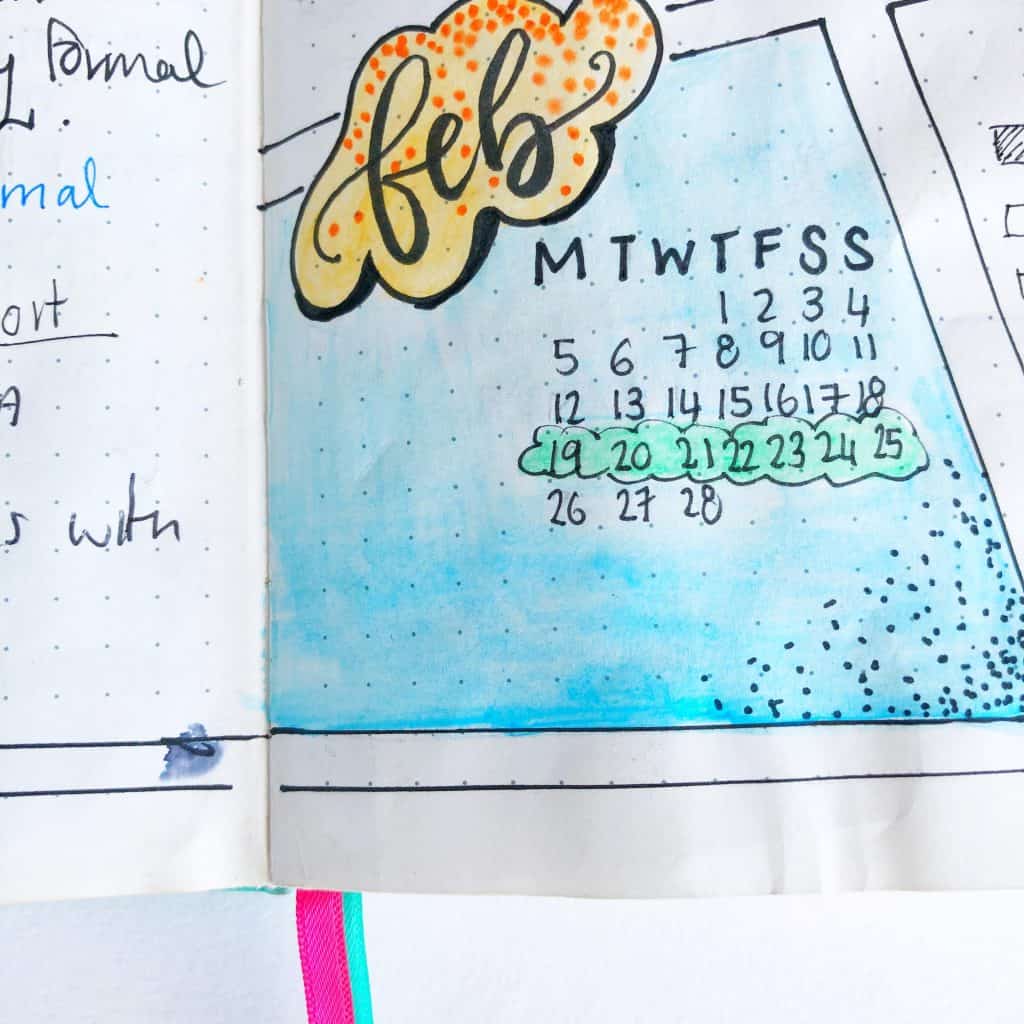 Formal
mal
ort
A
s with
feb
M T W T F S S
1 2 3 4
5 6 7 8 9 10 11
12 13 14 15 16 17 18
19 20 21 22 23 24 25
26 27 28